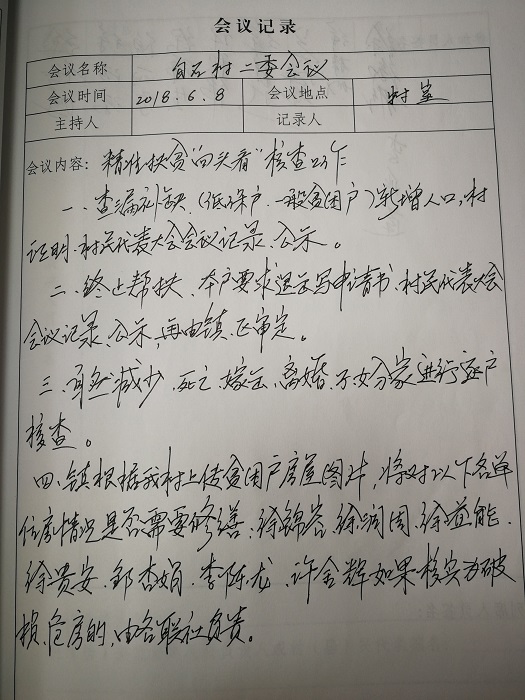 会议记录
会议名称 自石村二委会议
会议时间 2018.6.8 会议地点 村室
主持人 记录人
会议内容：精准扶贫"回头看"核查工作
一、查漏补缺（低保户、一般贫困户）新增人口，村
证明、村民代表大会会议记录、公示。
二、终止帮扶、本户要求退出写申请书、村民代表大会
会议记录、公示，再由镇、区审定。
三、自然减少、死亡、嫁出、离婚、子女分家进行逐户
核查。
四、镇根据我村上传贫困户房屋图片，将对以下各单
住房情况是否需要修缮：徐锦容、徐润周、徐益能、
徐贵安、邹杏娟、李陈龙、许金辉如果核实为破
损、危房的，由各联社负责。